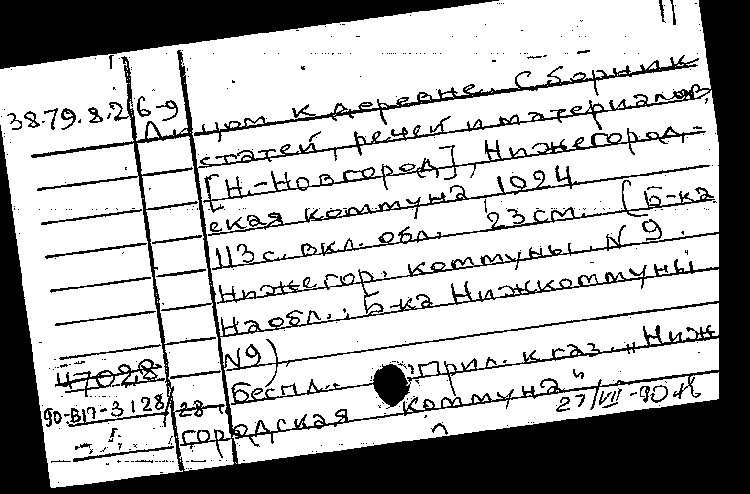 11
38.79.8.2 6-9
Лицом к деревне. Сборник
статей, речей и материалов,
[Н.-Новгород], Нижегород-
ская коммуна, 1924
113 с. вкл. обл. 23 см. (Б-ка
Нижегор. коммуны. N 9.
На обл.: Б-ка Нижкоммуны
N9)
47028 Беспл. Прил. к газ. „Ниж
90-В17-3128/ 28 городская коммуна"
27/VII-90